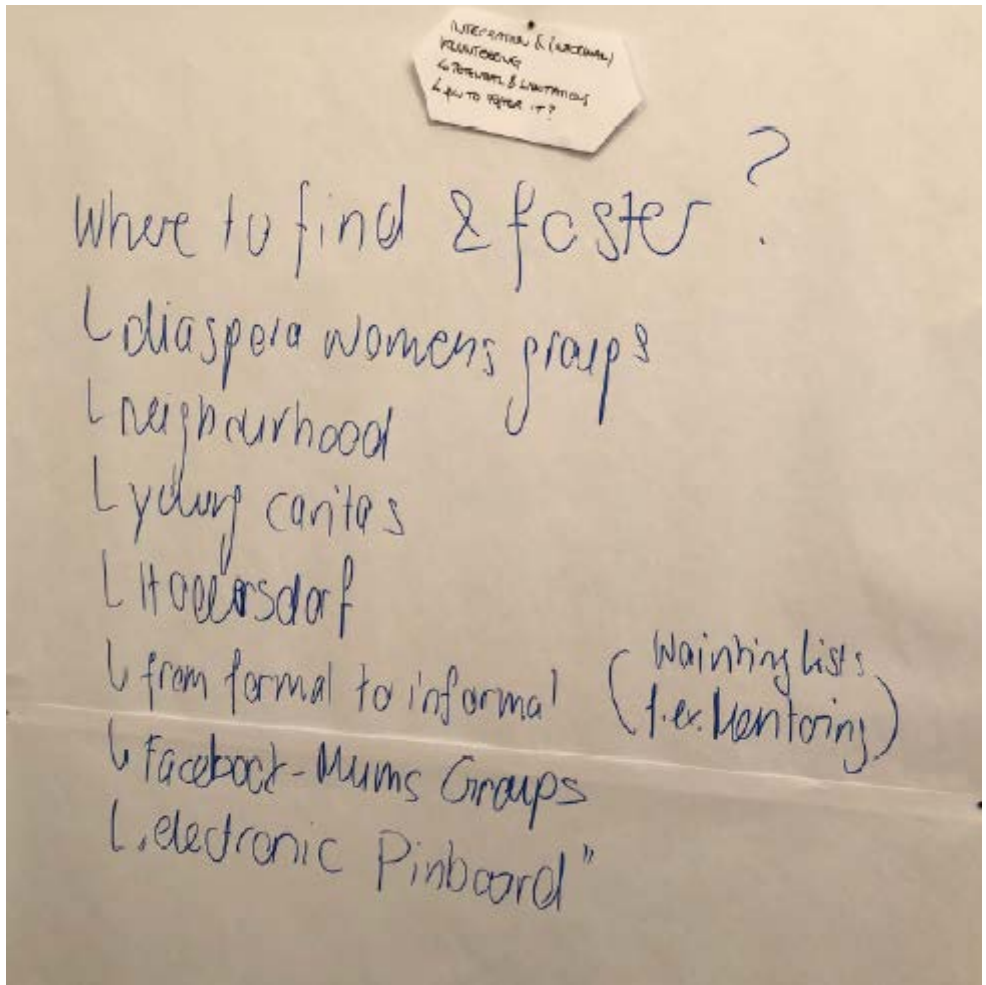 INTEGRATION & (INFORMAL)
VOLUNTEERING
↳ POTENTIAL & LIMITATIONS
↳ HOW TO FOSTER IT?
Where to find & foster ?
↳ diaspora womens groups
↳ neighbourhood
↳ young caritas
↳
↳ from formal to informal (Wainting Lists f.ex. Mentoring)
↳ Facebook-Mums Groups
↳ „electronic Pinboard"